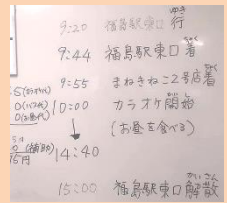 9:20 福島駅東口 行
9:44 福島駅東口 着
9:55 まねきねこ2号店 着
10:00 カラオケ開始
(お昼を食べる)
14:40
15:00 福島駅東口 解散
かいさん
(補助)
15円